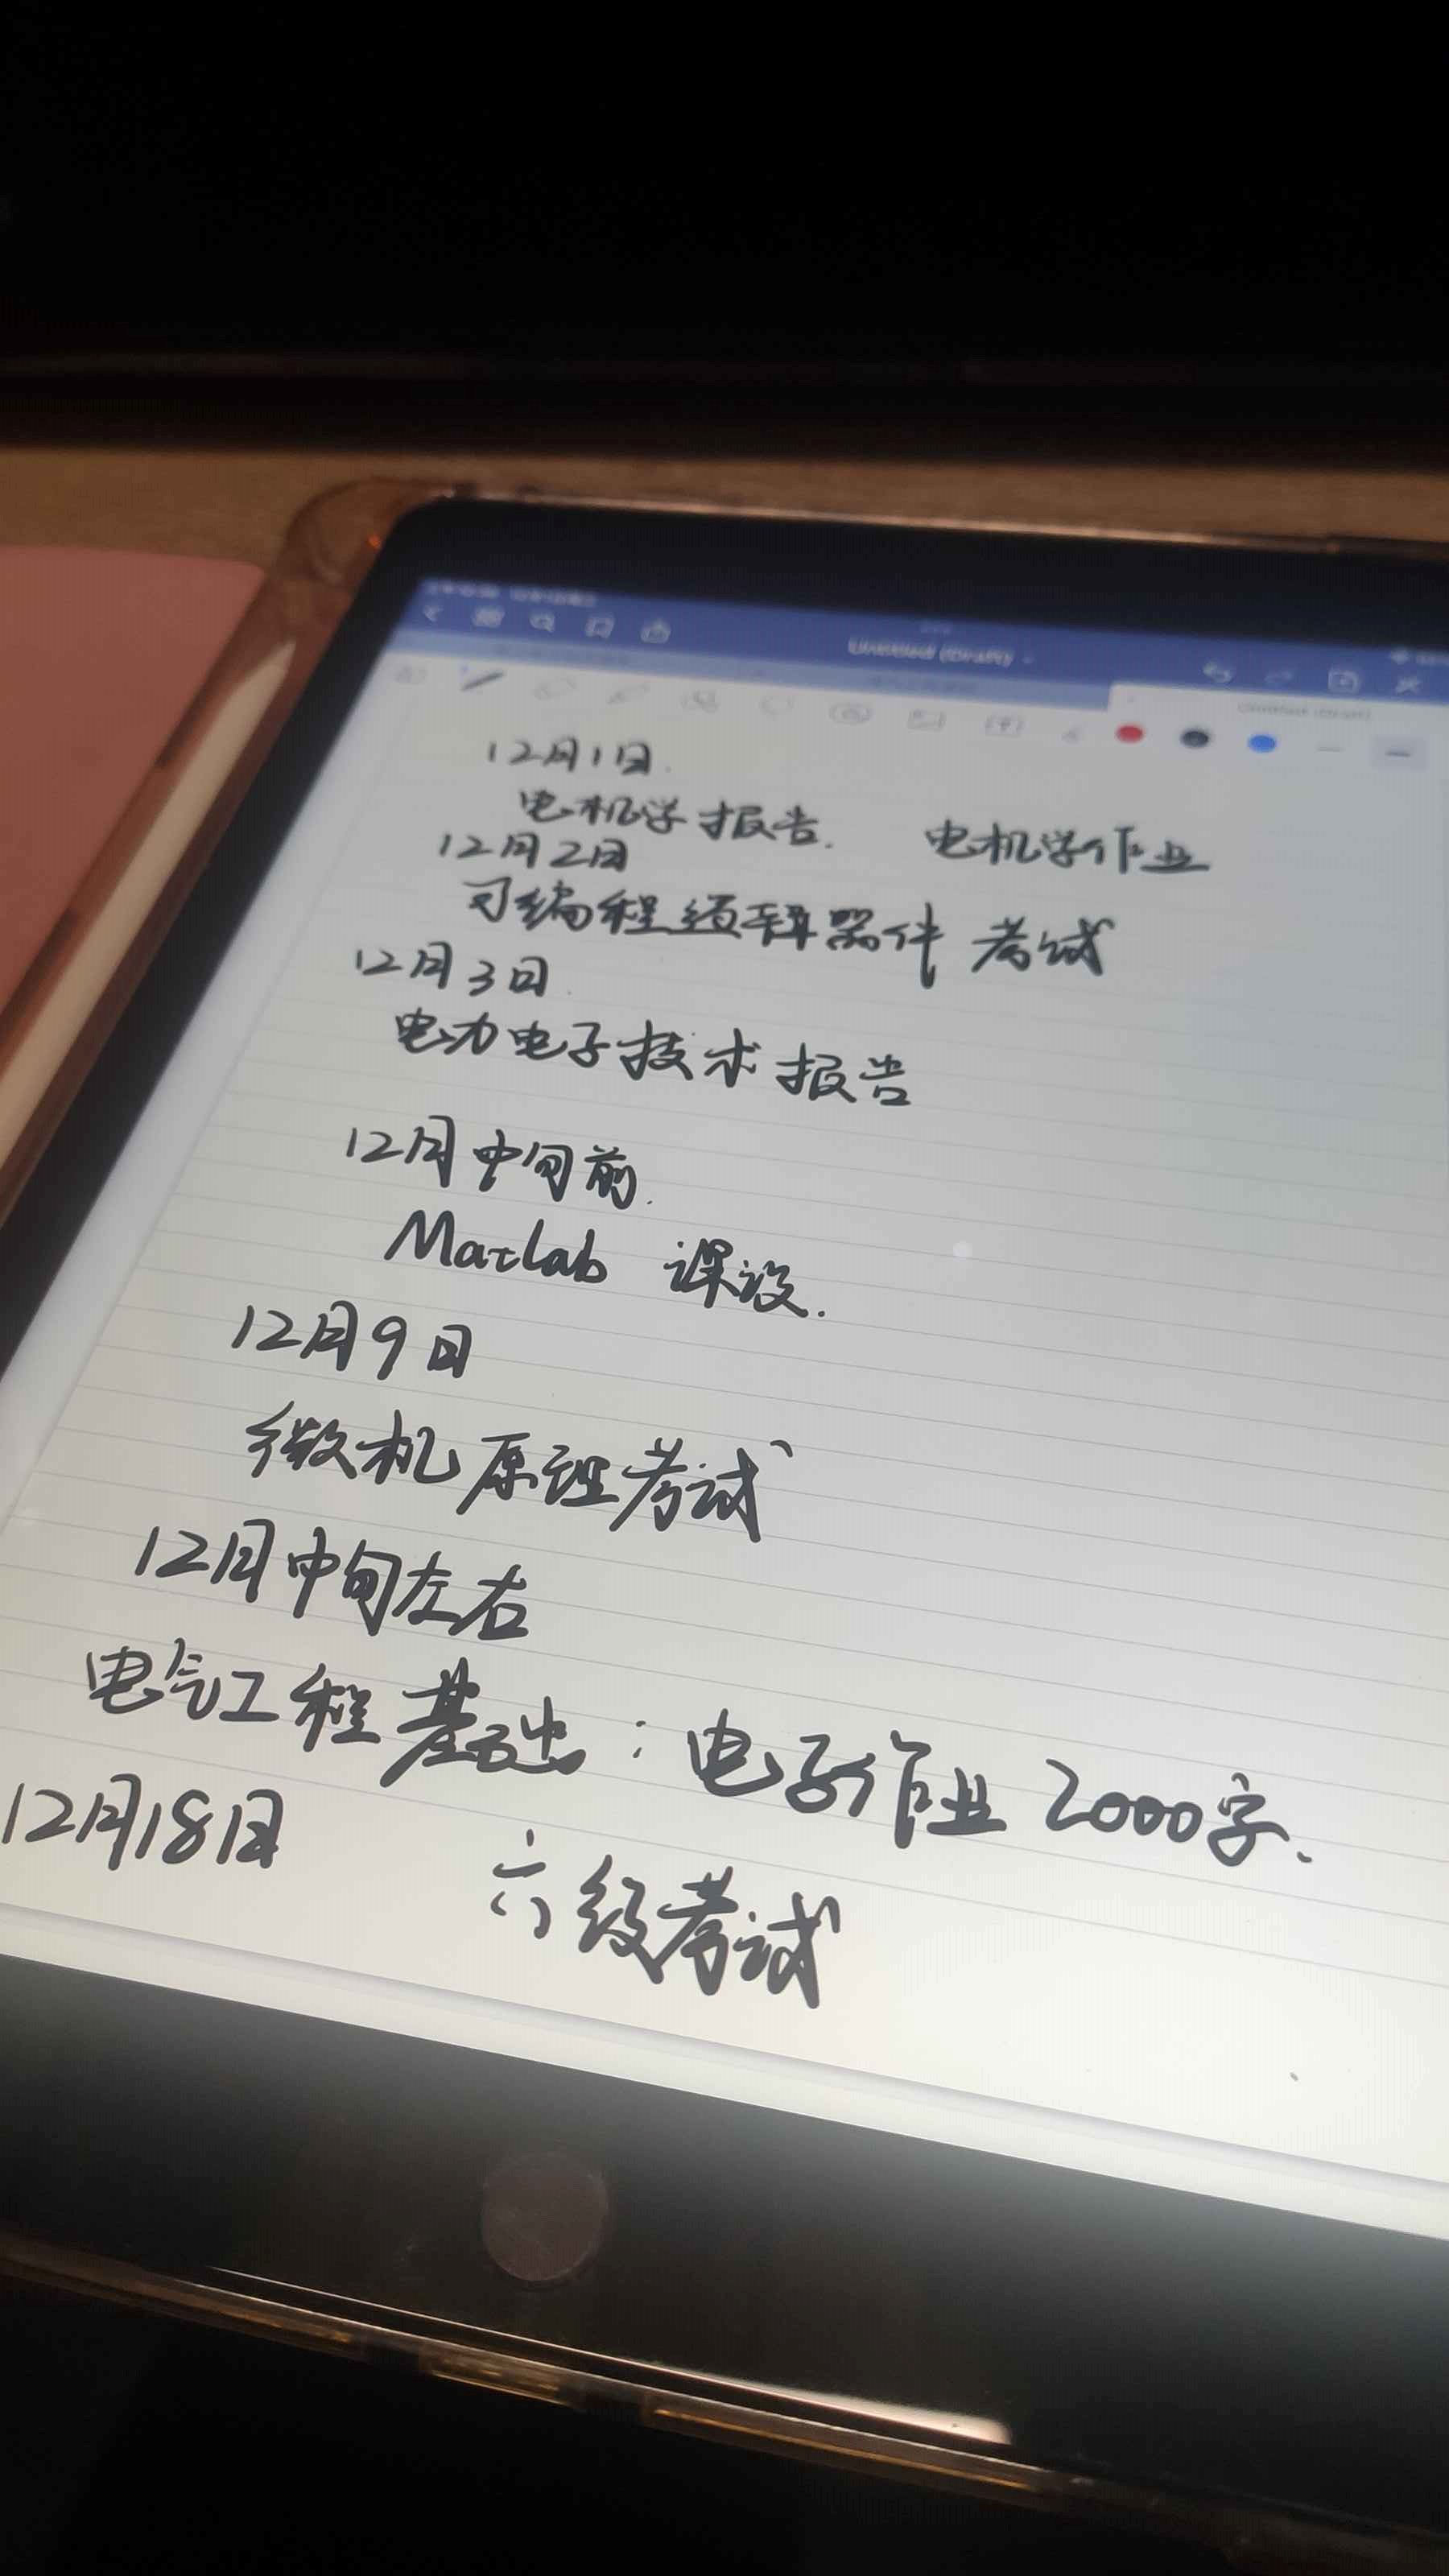 Untitled (Draft)
Untitled (Draft)
12月1日.
电机学报告. 电机学作业
12月2日
可编程逻辑器件 考试
12月3日.
电力电子技术报告
12月中旬前.
Matlab 课设.
12月9日
微机原理考试
12月中旬左右
电气工程基础：电子作业 2000字、
12月18日 六级考试